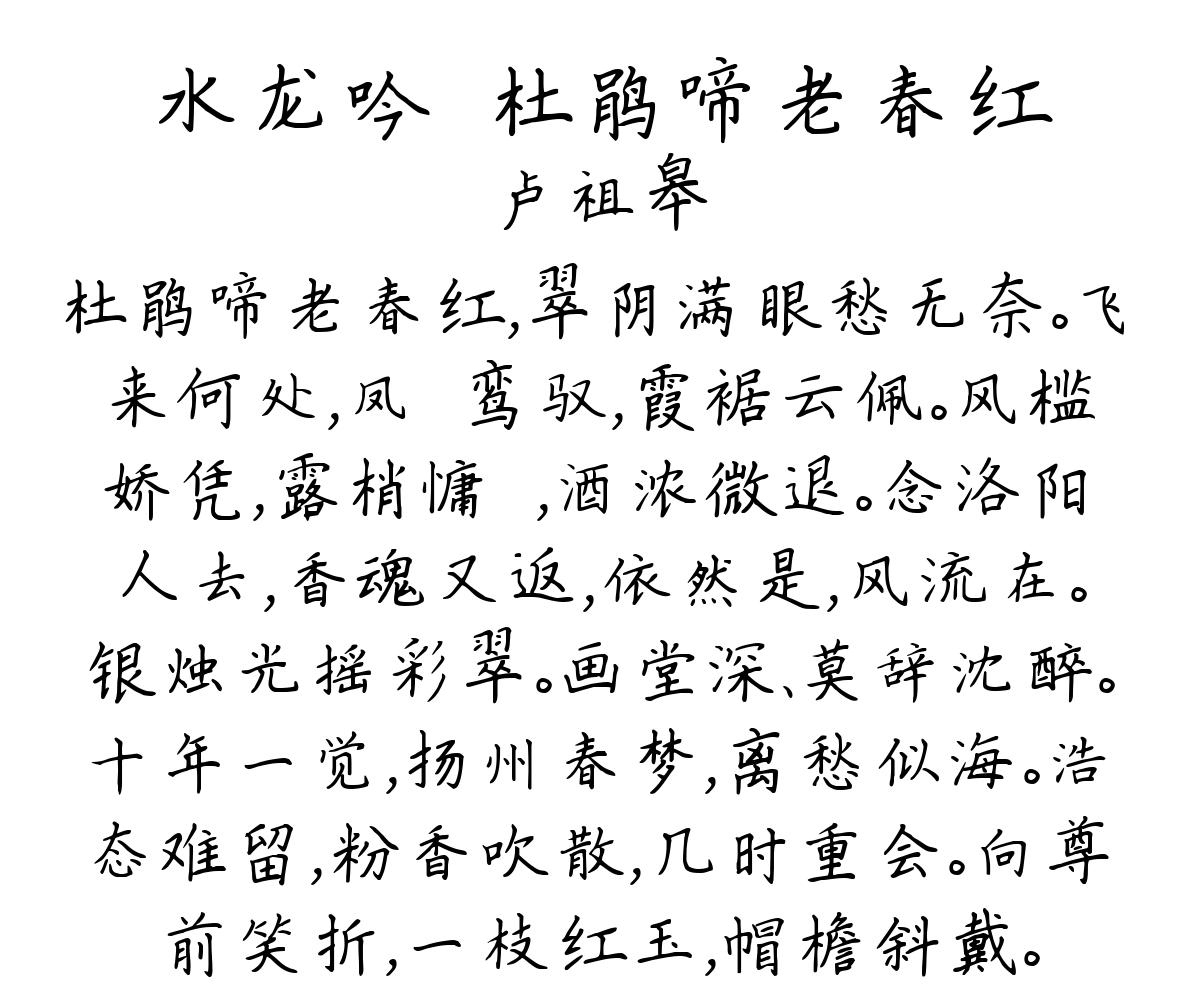 水龙吟 杜鹃啼老春红
卢祖皋
杜鹃啼老春红,翠阴满眼愁无奈。飞
来何处,凤 鸾驭,霞裾云佩。风槛
娇凭,露梢慵 ,酒浓微退。念洛阳
人去,香魂又返,依然是,风流在。
银烛光摇彩翠。画堂深、莫辞沈醉。
十年一觉,扬州春梦,离愁似海。浩
态难留,粉香吹散,几时重会。向尊
前笑折,一枝红玉,帽檐斜戴。